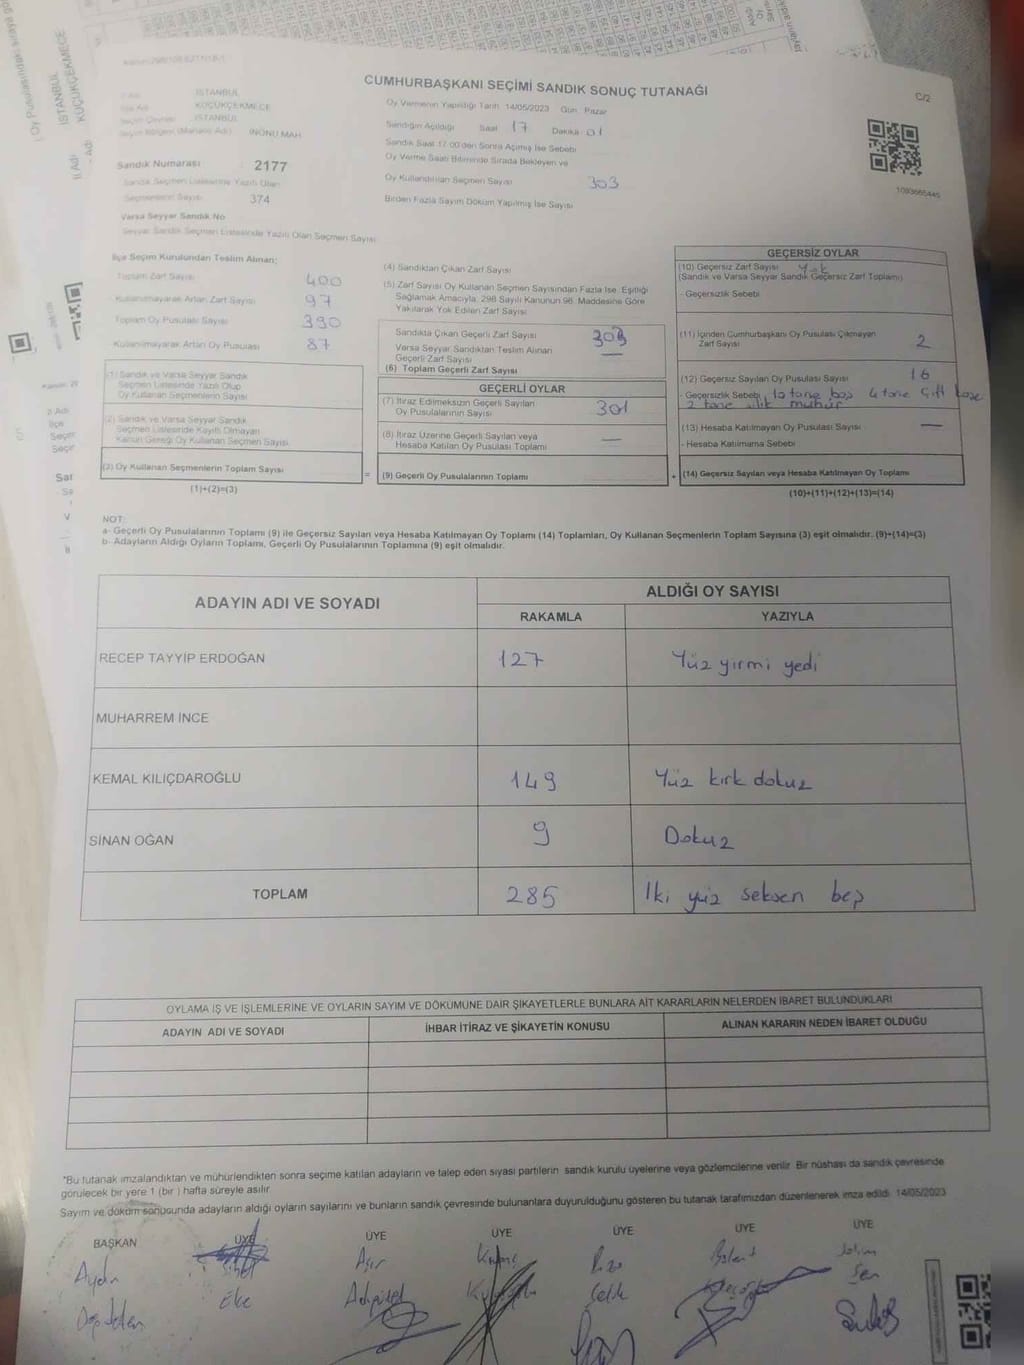 İSTANBUL
KÜÇÜKÇEKMECE
CUMHURBAŞKANI SEÇİMİ SANDIK SONUÇ TUTANAĞI
C/2
İSTANBUL
KÜÇÜKÇEKMECE
İSTANBUL
Seçim Bölgesi (Mahalle Adı) İNÖNÜ MAH.
Sandık Numarası : 2177
Sandık Seçmen Listesinde Yazılı Olan
Seçmenlerin Sayısı 374
Varsa Seyyar Sandık No
Seyyar Sandık Seçmen Listesinde Yazılı Olan Seçmen Sayısı:
Oy Vermenin Yapıldığı Tarih 14/05/2023 Gün Pazar
Sandığın Açıldığı Saat 17 Dakika 01
Sandık Saat 17:00'den Sonra Açılmış İse Sebebi
Oy Verme Saati Bitiminde Sırada Bekleyen ve
Oy Kullandırılan Seçmen Sayısı 303
Birden Fazla Sayım Döküm Yapılmış İse Sayısı
1093665445
İlçe Seçim Kurulundan Teslim Alınan;
Toplam Zarf Sayısı 400
Kullanılmayarak Artan Zarf Sayısı 97
Toplam Oy Pusulası Sayısı 390
Kullanılmayarak Artan Oy Pusulası 87
(1) Sandık ve Varsa Seyyar Sandık
Seçmen Listesinde Yazılı Olup
Oy Kullanan Seçmenlerin Sayısı
(2) Sandık ve Varsa Seyyar Sandık
Seçmen Listesinde Kayıtlı Olmayan
Kanun Gereği Oy Kullanan Seçmen Sayısı
(3) Oy Kullanan Seçmenlerin Toplam Sayısı
(1)+(2)=(3)
=
(4) Sandıktan Çıkan Zarf Sayısı
(5) Zarf Sayısı Oy Kullanan Seçmen Sayısından Fazla İse, Eşitliği
Sağlamak Amacıyla, 298 Sayılı Kanunun 98. Maddesine Göre
Yakılarak Yok Edilen Zarf Sayısı
Sandıkta Çıkan Geçerli Zarf Sayısı 303
Varsa Seyyar Sandıktan Teslim Alınan
Geçerli Zarf Sayısı —
(6) Toplam Geçerli Zarf Sayısı
GEÇERLİ OYLAR
(7) İtiraz Edilmeksizin Geçerli Sayılan
Oy Pusulalarının Sayısı 301
(8) İtiraz Üzerine Geçerli Sayılan veya
Hesaba Katılan Oy Pusulası Toplamı —
(9) Geçerli Oy Pusulalarının Toplamı
+
GEÇERSİZ OYLAR
(10) Geçersiz Zarf Sayısı Yok
(Sandık ve Varsa Seyyar Sandık Geçersiz Zarf Toplamı)
- Geçersizlik Sebebi
(11) İçinden Cumhurbaşkanı Oy Pusulası Çıkmayan
Zarf Sayısı 2
(12) Geçersiz Sayılan Oy Pusulası Sayısı 16
- Geçersizlik Sebebi 10 tane boş 4 tane Çift kaşe
2 tane silik mühür
(13) Hesaba Katılmayan Oy Pusulası Sayısı —
- Hesaba Katılmama Sebebi
(14) Geçersiz Sayılan veya Hesaba Katılmayan Oy Toplamı
(10)+(11)+(12)+(13)=(14)
NOT:
a- Geçerli Oy Pusulalarının Toplamı (9) ile Geçersiz Sayılan veya Hesaba Katılmayan Oy Toplamı (14) Toplamları, Oy Kullanan Seçmenlerin Toplam Sayısına (3) eşit olmalıdır. (9)+(14)=(3)
b- Adayların Aldığı Oyların Toplamı, Geçerli Oy Pusulalarının Toplamına (9) eşit olmalıdır.
ADAYIN ADI VE SOYADI ALDIĞI OY SAYISI
RAKAMLA YAZIYLA
RECEP TAYYİP ERDOĞAN 127 Yüz yirmi yedi
MUHARREM İNCE
KEMAL KILIÇDAROĞLU 149 Yüz kırk dokuz
SİNAN OĞAN 9 Dokuz
TOPLAM 285 İki yüz seksen beş
OYLAMA İŞ VE İŞLEMLERİNE VE OYLARIN SAYIM VE DÖKÜMÜNE DAİR ŞİKAYETLERLE BUNLARA AİT KARARLARIN NELERDEN İBARET BULUNDUKLARI
ADAYIN ADI VE SOYADI İHBAR İTİRAZ VE ŞİKAYETİN KONUSU ALINAN KARARIN NEDEN İBARET OLDUĞU
"Bu tutanak imzalandıktan ve mühürlendikten sonra seçime katılan adayların ve talep eden siyasi partilerin sandık kurulu üyelerine veya gözlemcilerine verilir. Bir nüshası da sandık çevresinde
görülecek bir yere 1 (bir ) hafta süreyle asılır.
Sayım ve döküm sonusunda adayların aldığı oyların sayılarını ve bunların sandık çevresinde bulunanlara duyurulduğunu gösteren bu tutanak tarafımızdan düzenlenerek imza edildi. 14/05/2023
BAŞKAN ÜYE ÜYE ÜYE ÜYE ÜYE ÜYE
Aydın
Eke Çelik Şen